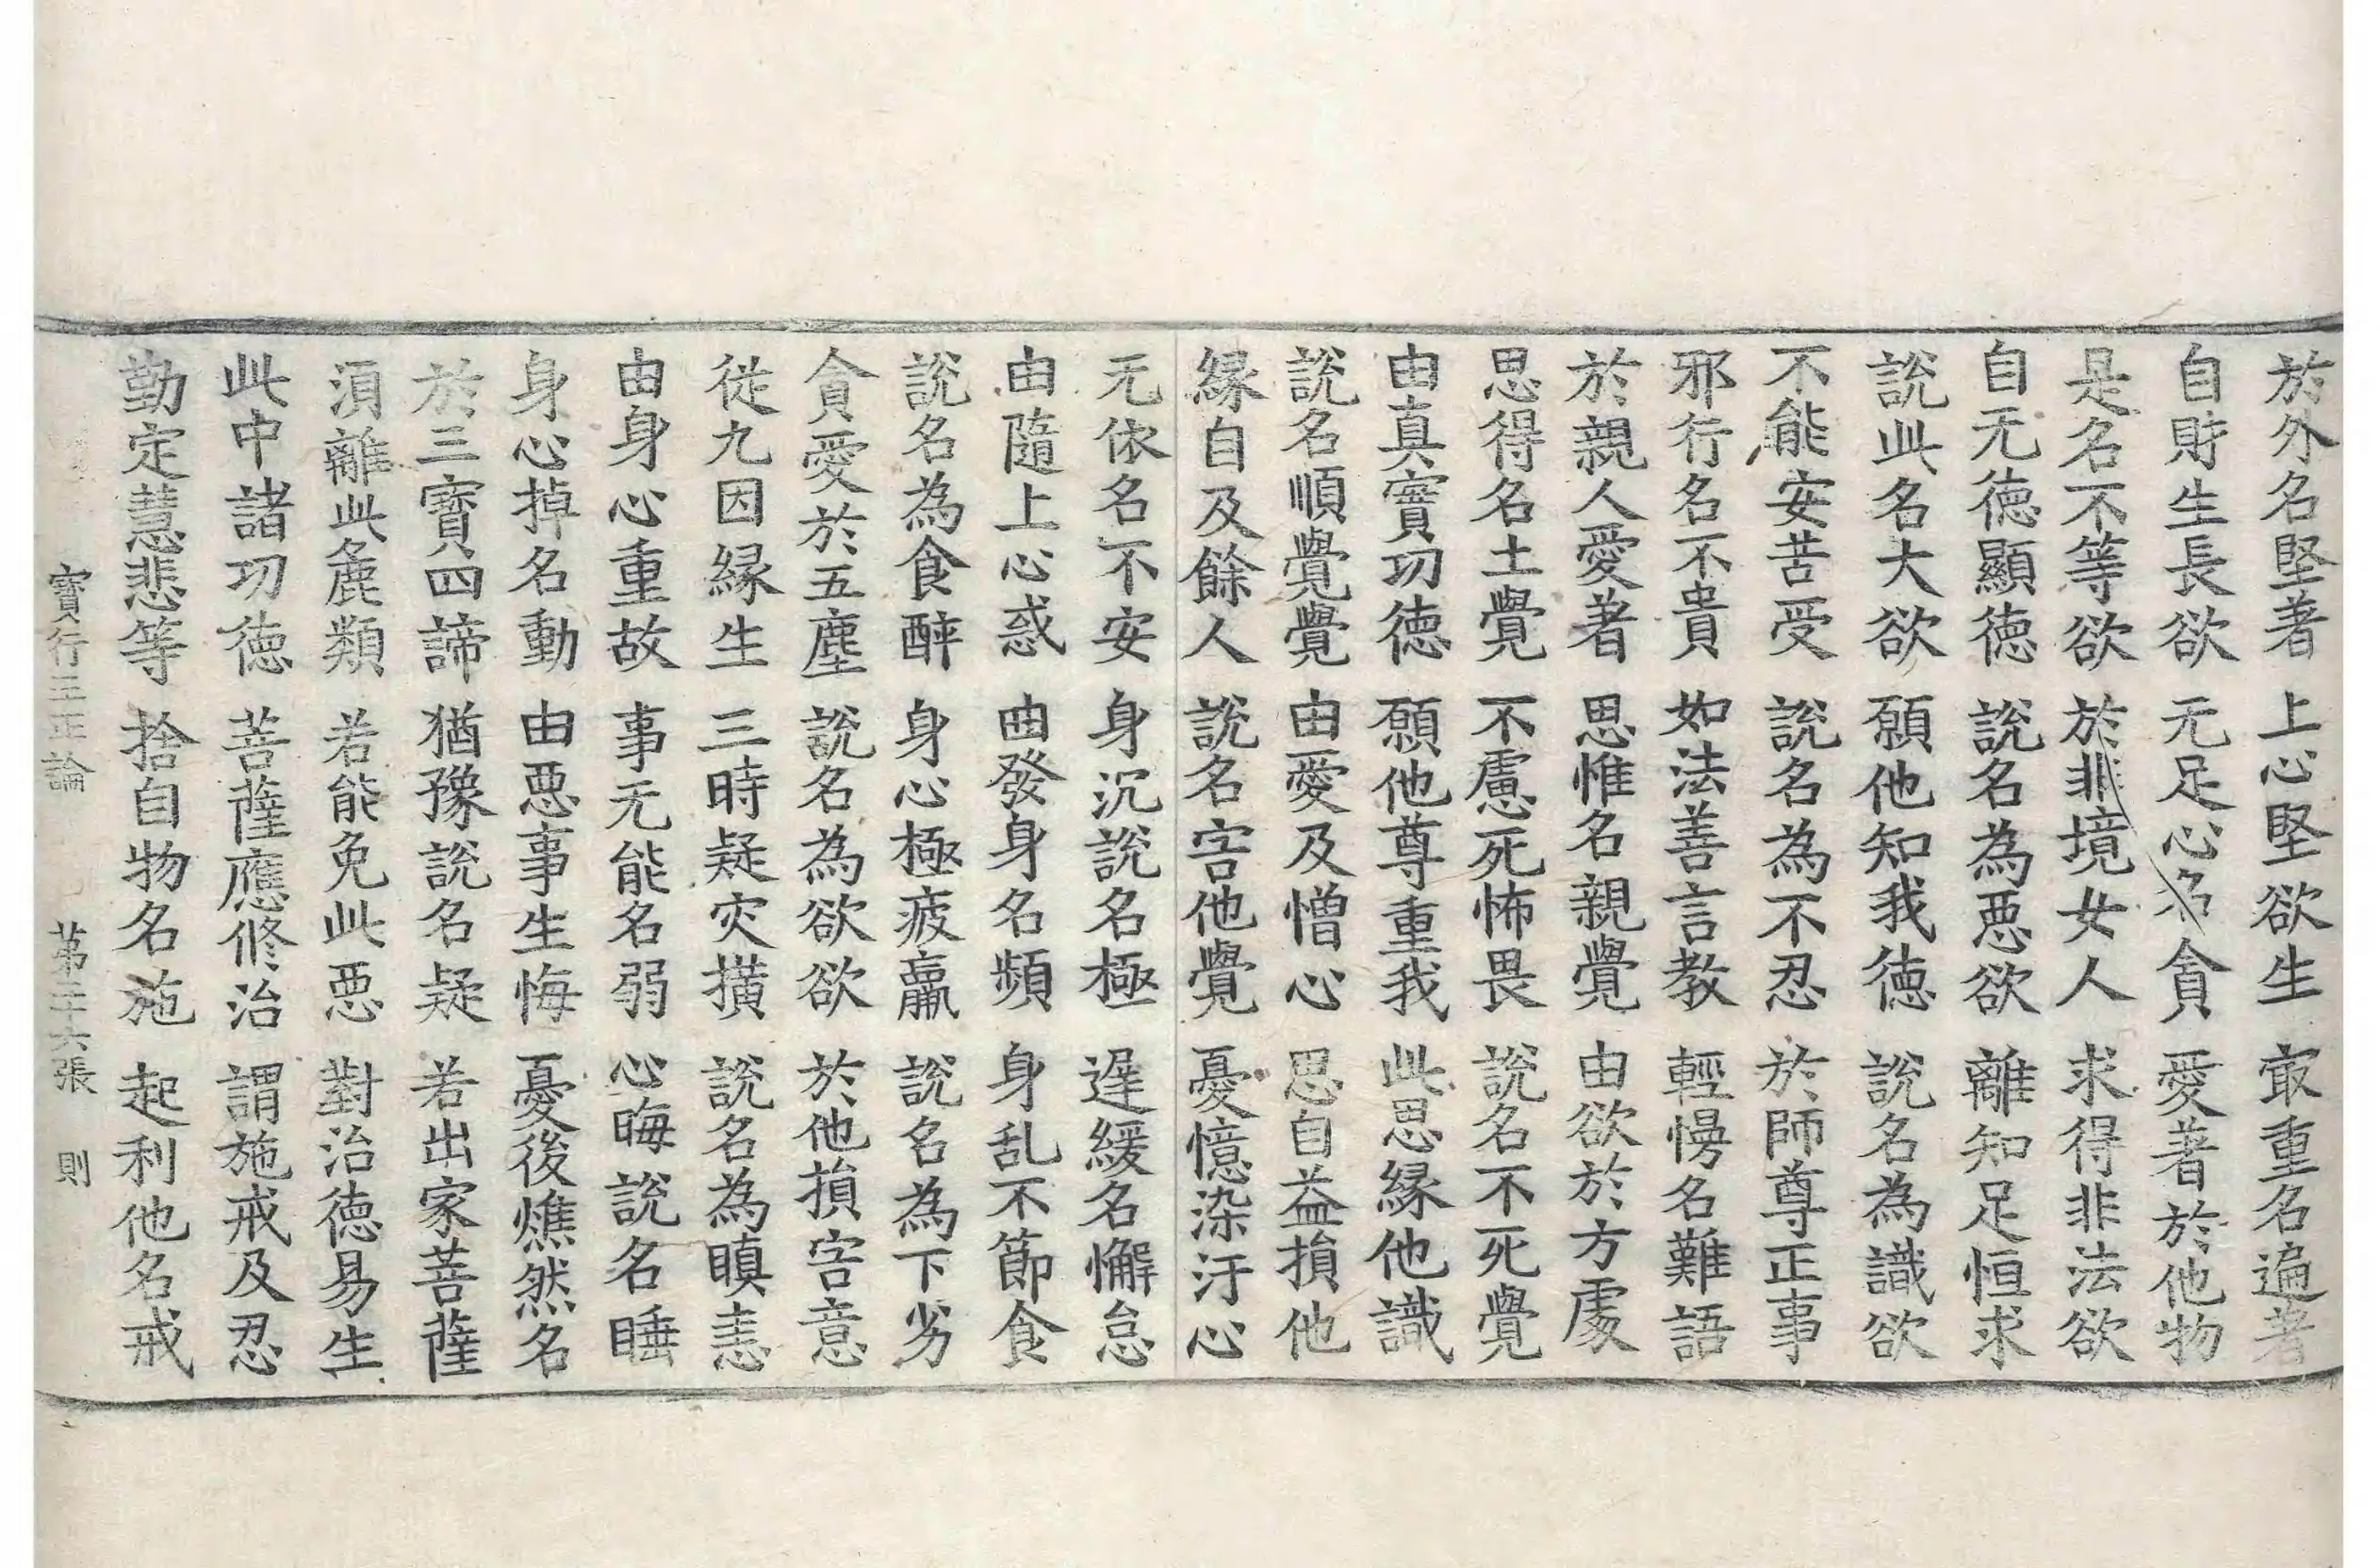 於外名堅著 上心堅欲生 㝡重名遍著
自財生長欲 无足心名貪 愛著於他物
是名不等欲 於非境女人 求得非法欲
自无徳顯徳 說名為惡欲 離知足恒求
說此名大欲 願他知我徳 說名為識欲
不能安苦受 說名為不忍 於師尊正事
邪行名不貴 如法善言教 輕慢名難語
於親人愛著 思惟名親覺 由欲於方處
思得名土覺 不慮死怖畏 說名不死覺
由真實功徳 願他尊重我 此思緣他識
說名順覺覺 由愛及憎心 思自益損他
緣自及餘人 說名害他覺 憂憶染汙心
无依名不安 身沉說名極 遅緩名懈怠
由隨上心惑 曲發身名頻 身乱不節食
說名為食醉 身心極疲羸 說名為下劣
貪愛於五塵 說名為欲欲 於他損害意
從九因緣生 三時疑灾擴 說名為瞋恚
由身心重故 事无能名弱 心晦說名睡
身心掉名動 由惡事生悔 憂後燋然名
於三寶四諦 猶豫說名疑 若出家菩薩
須離此麁類 若能免此惡 對治徳易生
此中諸功徳 菩薩應修治 謂施戒及忍
勤定慧悲等 捨自物名施 起利他名戒
寶行王正論 第二十六張 則